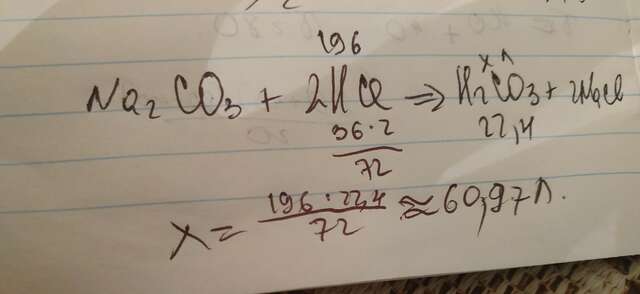 196 x л
Na₂CO₃ + 2HCl ⇒ H₂CO₃ + 2NaCl
36·2 22,4
72
x = 196·22,4 / 72 ≈ 60,97 л.